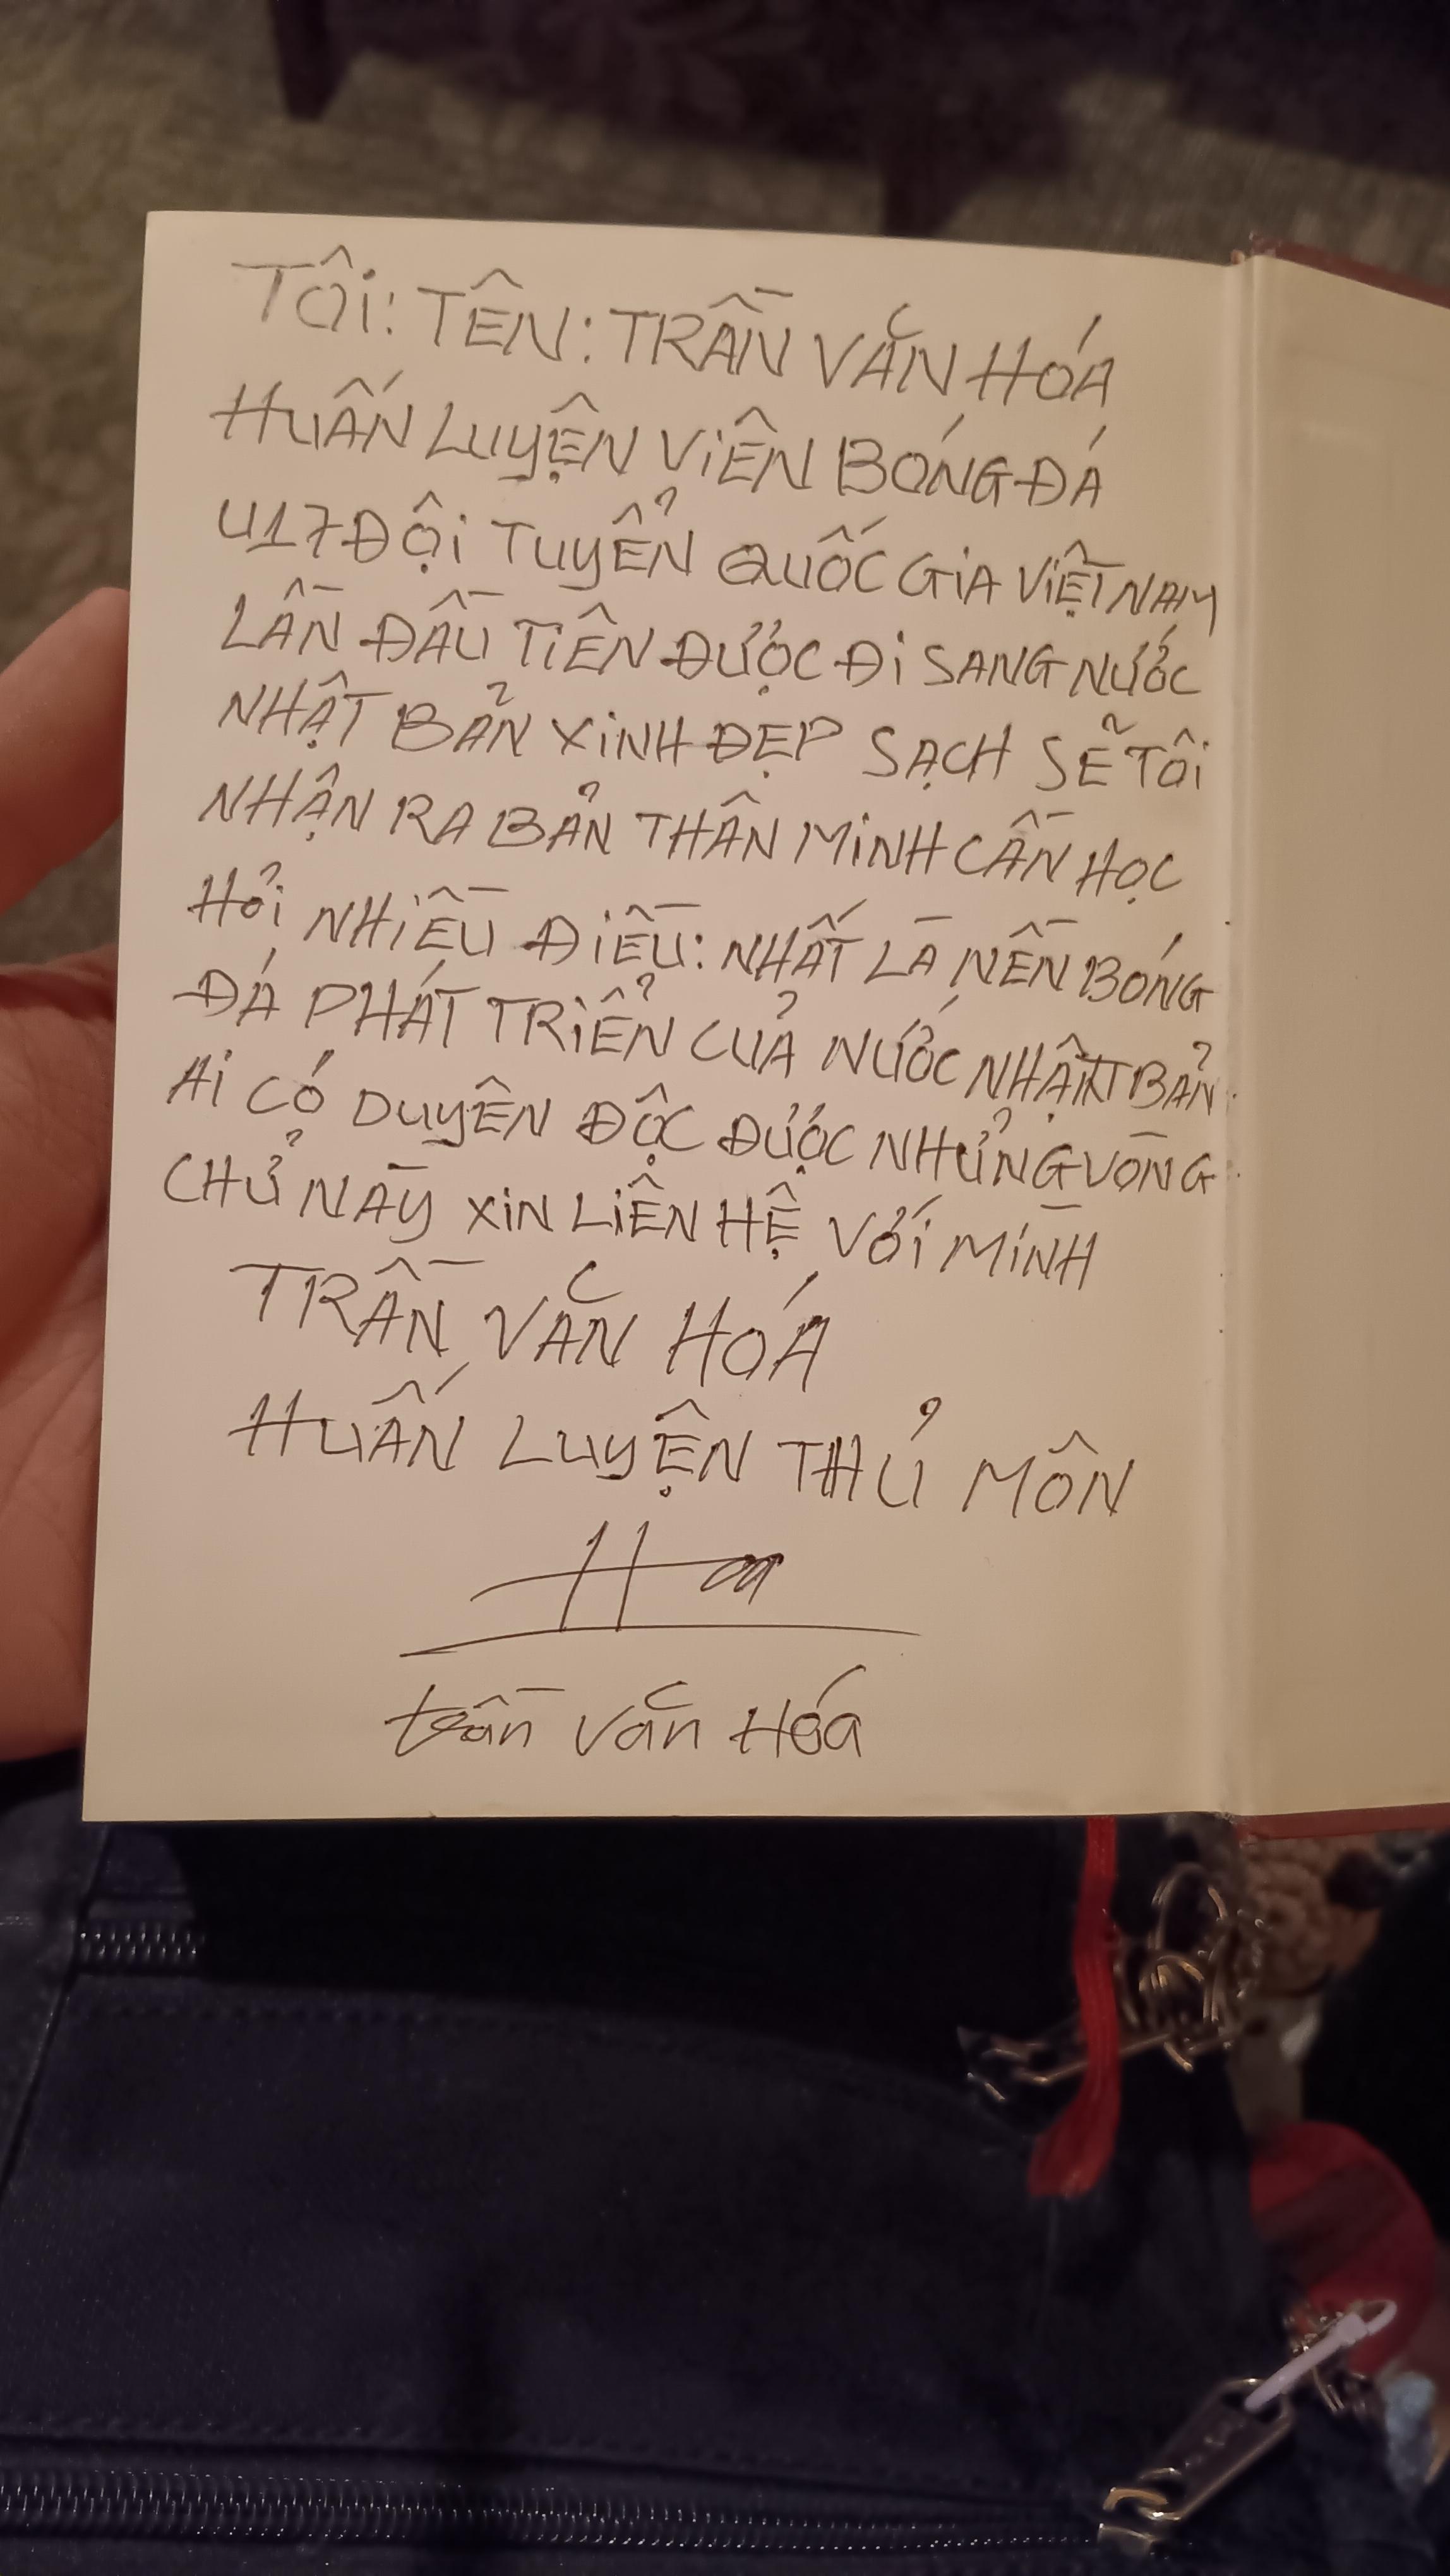 TÔi: TÊN: TRẦN VĂN HÓA
HUẤN LUYỆN ViÊN BÓNG ĐÁ
U17 ĐỘi TUYỂN QUỐC GiA ViỆT NAM
LẦN ĐẦU TiÊN ĐƯỢC Đi SANG NƯỚC
NHẬT BẢN XiNH ĐẸP SẠCH SẼ TÔi
NHẬN RA BẢN THÂN MiNH CẦN HỌC
HỎi NHiỀU ĐiỀU: NHẤT LÀ NỀN BÓNG
ĐÁ PHÁT TRiỂN CỦA NƯỚC NHẬT BẢN
Ai CÓ DUYÊN ĐỘC ĐƯỢC NHỮNG VÒNG
CHỬ NÀY XiN LiÊN HỆ VỚi MÌNH
TRẦN VĂN HÓA
HUẤN LUYỆN THỦ MÔN
Hoa
trần văn Hóa